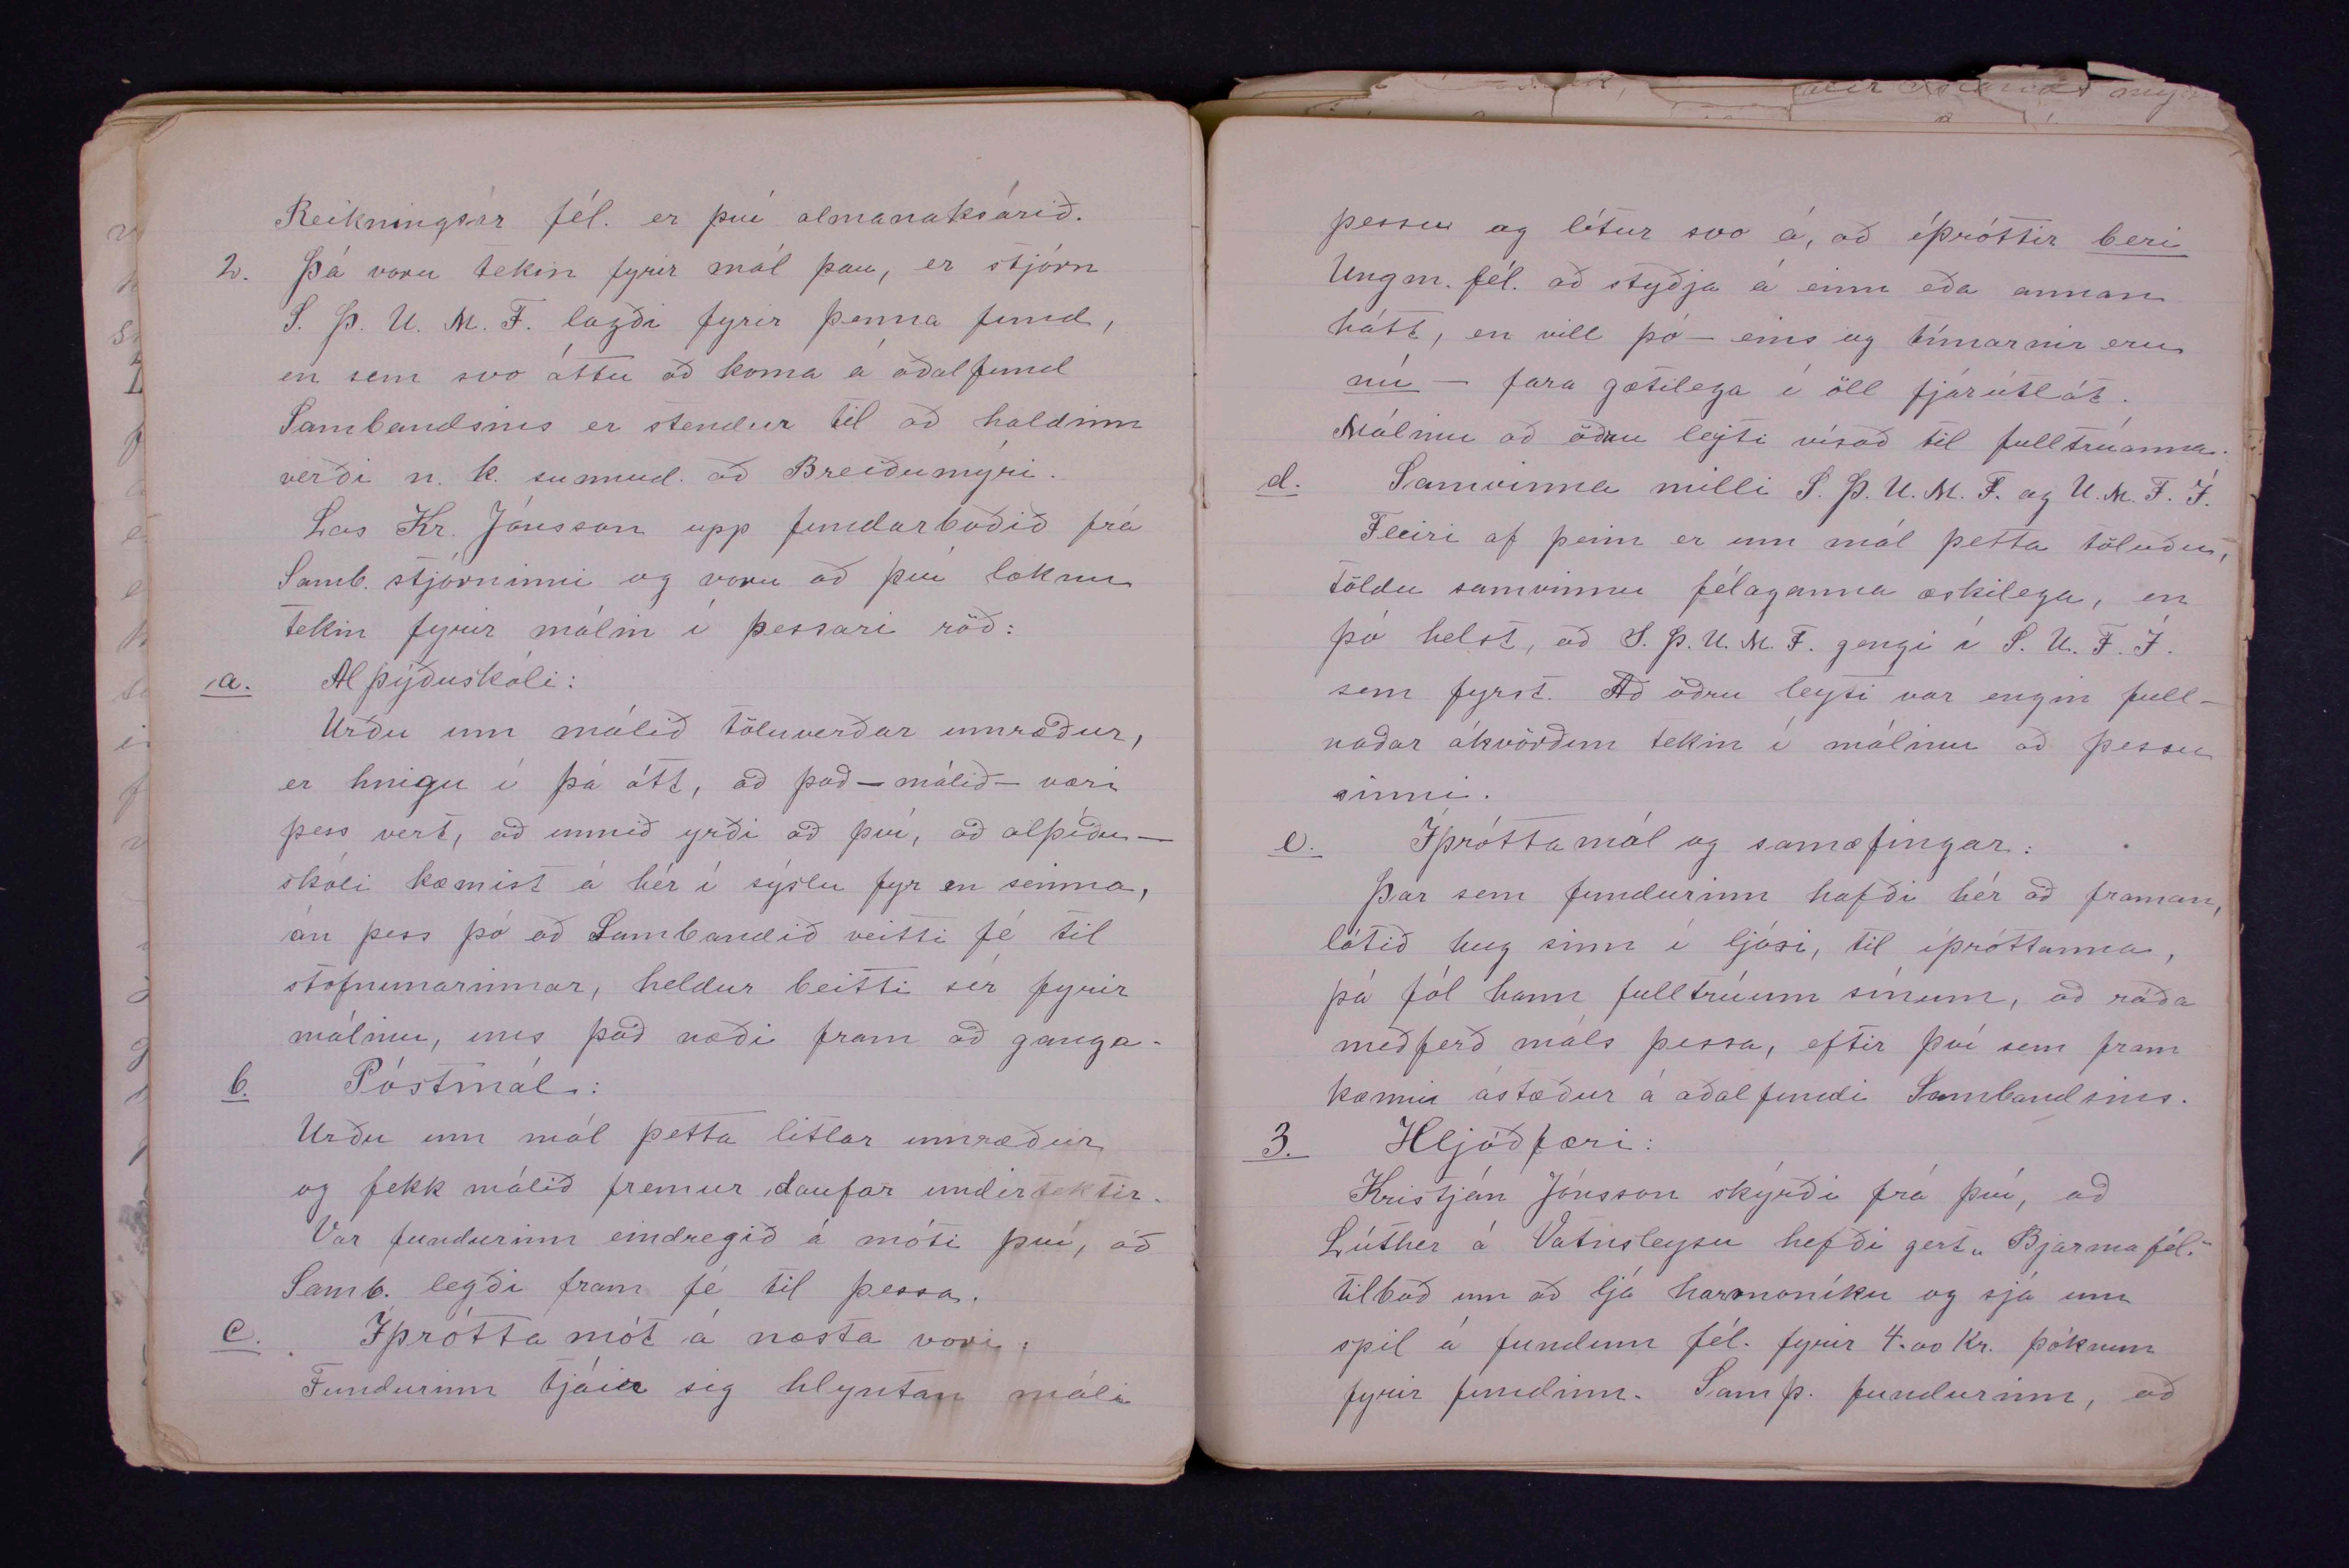 Reikningsár fél. er því almanaksárið.
2. Þá voru tekin fyrir mál þau, er stjórn
S. Þ. U. M. F. lagði fyrir þenna fund,
en sem svo áttu að koma á aðalfund
Sambandsins er stendur til að haldinn
verði n. k. sunnud. að Breiðumýri.
Las Kr. Jónsson upp fundarboðið frá
Samb. stjórninni og voru að því loknu
tekin fyrir málin í þessari röð:
a. Alþýðuskóli:
Urðu um málið töluverðar umræður,
er hnigu í þá átt, að það – málið – væri
þess vert, að unnið yrði að því, að alþíðu-
skóli kæmist á hér í sýslu fyr en seinna,
án þess þó að Sambandið veitti fé til
stofnunarinnar, heldur beitti sér fyrir
málinu, uns það næði fram að ganga.
b. Póstmál:
Urðu um mál þetta litlar umræður
og fekk málið fremur daufar undirtektir.
Var fundurinn eindregið á móti því, að
Samb. legði fram fé til þessa.
c. Íþróttamót á næsta vori:
Fundurinn tjáir sig hlyntan máli
þessu og lítur svo á, að íþróttir beri
Ungm. fél. að styðja á einn eða annan
hátt, en vill þó – eins og tímarnir eru
nú – fara gætilega í öll fjárútlát.
Málinu að öðru leyti vísað til fulltrúanna.
d. Samvinna milli S. Þ. U. M. F. og U. M. F. Í.
Fleiri af þeim er um mál þetta töluðu,
töldu samvinnu félaganna æskilega, en
þó helst, að S. Þ. U. M. F. gengi í S. U. F. Í.
sem fyrst. Að öðru leyti var engin full-
naðar ákvörðun tekin í málinu að þessu
sinni.
e. Íþróttamál og samæfingar:
Þar sem fundurinn hafði hér að framan,
látið hug sinn í ljósi, til íþróttanna,
þá fól hann fulltrúum sínum, að ráða
meðferð máls þessa, eftir því sem fram
kæmu ástæður á aðalfundi Sambandsins.
3. Hljóðfæri:
Kristján Jónsson skýrði frá því, að
Lúther á Vatnsleysu hefði gert „Bjarmafél."
tilboð um að ljá harmoníku og sjá um
spil á fundum fél. fyrir 4.00 Kr. þóknun
fyrir fundinn. Samþ. fundurinn, að